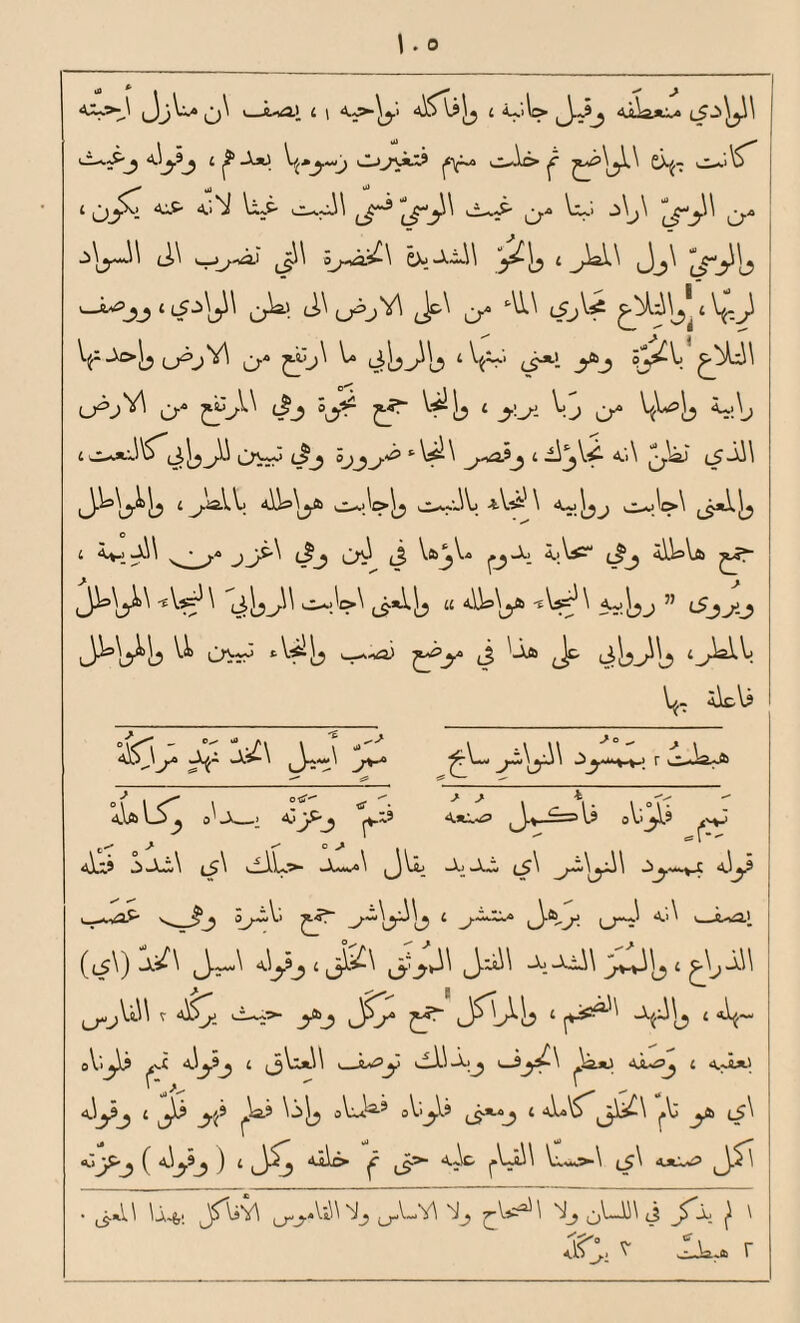 ١٠٥
الوادي منعطفه وقيل جانبه ، وأفاكله نواحيه ١ ، يصف ان منازل أحبته
كانت بهذه المواضع ثم خلت منهم فتغيرت رسومها بعدهم ، وقوله وغيث
من الوسمي أراد نبتا من غيث الوسمي فسمى النبت غيثا لأنه عنه يكون ،
والوسمي أول المطر ، والحو الشديد الخضرة التي تضرب الى السواد
لريها ، والتلاع مجاري الماء من أعلى الأرض الى بطن الوادي ، ووصف
التلاع بالحوة وهو يعني نبتها ، والروابي ما ارتفع من الأرض واحدها
رابية وأصلها من ربا يربو ، والنجا جمع نجوة وهي المرتفع من الأرض
الذي تظن أنه نجاؤك ، وقصر النجاء ضرورة وهي تبيين للروابي كالنعت ،
والمعنى أجابت روابيه النجاء بالنبت وأجابت هواطله بالمطر ، والهواطل
جمع هاطلة وهي سحابة يدوم ماؤها في لين وهي أغزر من الديمة ،
ويروى « روابيه النجاء هواطله » والمعنى أجابت الروابي النجاء الهواطل
بالمطر ، والروابي على هذا في موضع نصب ، والنجاء تبيين لها والهواطل
فاعلة بها
هبطت ٢ بممسود النواشر سابح ممر أسيل الخد نهد مراكله
تميم فلوناه فأكمل صنعه فتم وعزته يداه وكاهله
قوله بممسود النواشر أي شديد يقال امسد حبلك أي اشدد فتله
يصف انه ليس برهل منتشر ، والنواشر جمع ناشرة وهي عصب
الذراع ، والممر الشديد الفتل الموثق الخلق ، وقوله أسيل الخد (أي)
سهله ، والنهد الضخم ، والمراكل جمع مركل وهو حيث تركله ٣ الفارس
بعقبه ، وصفه بعظم الجوف وبذلك توصف العتاق ، وقوله تميم فلوناه
أي هو تام الخلق كامله ، ومعنى فلوناه فطمناه وإذا فطم فهو فلو ، وقوله
أكمل صنعه أي احسنا القيام عليه حتى تم خلقه وكمل ، (وقوله) وعزته
١ لم يذكر في اللسان ولا الصحاح ولا الأساس ولا القاموس الأفاكل بهذا المعنى .
٢ هبطت ٣ يركله